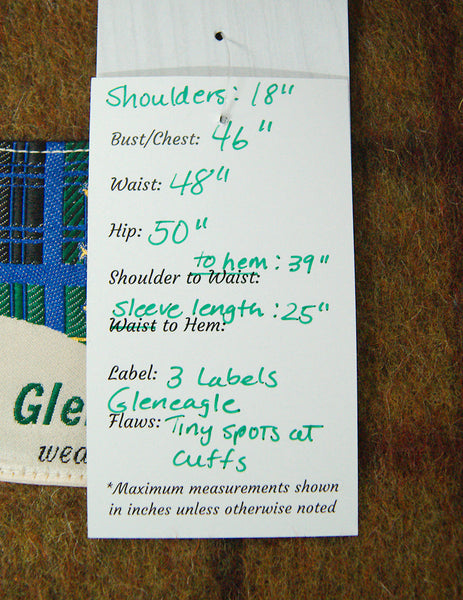 Shoulders: 18"
Bust/Chest: 46"
Waist: 48"
Hip: 50"
to hem: 39"
Shoulder to Waist:
Sleeve length: 25"
Waist to Hem:
Label: 3 Labels
Gleneagle
Flaws: Tiny spots at
cuffs
*Maximum measurements shown
in inches unless otherwise noted
Gle
wea